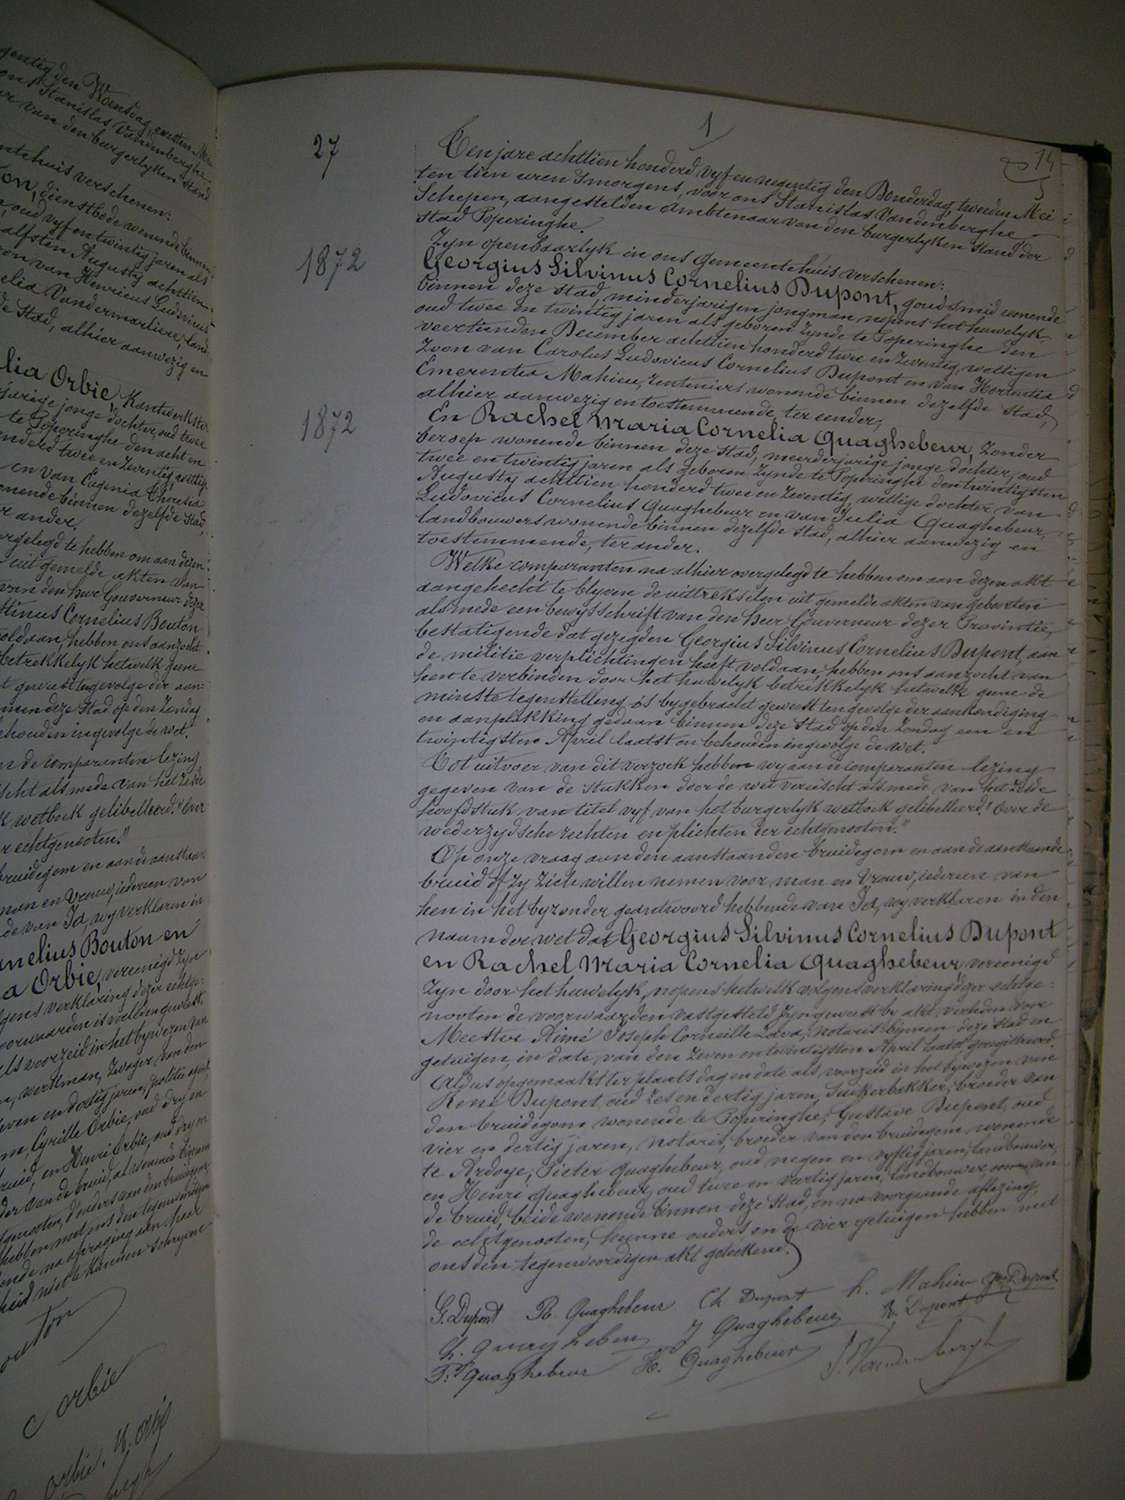 gentig den Woensdag
ons Stanislas Vandenberghe
van den burgerlyken stand
ntehuis verschenen:
dienstbode wonende binnen
oud vyf en twintig jaren als
Augusty achttien
zoon van Henricus Ludovicus
elia Vandermarliere, land
de Stad, alhier aanwezig en
lia Orbie, Kantwerkster
jarige jonge dochter, oud twee
te Poperinghe den acht en
honderd twee en zeventig wettige
en van Eugenia
wonende binnen dezelfde Stad,
er ander,
vergelegd te hebben om aan dezen
uit gemelde akten van
van den heer Gouverneur dezer
stinus Cornelius Bouton
voldaan, hebben ons aanzocht
betrekkelyk hetwelk geene
t geweest tengevolge der aan
nnen deze Stad op den Zondag
behouden ingevolge de wet.
n de comparanten lezing
scht als mede van het zesde
k wetboek gelibelleerd "Over
r echtgenooten."
bruidegom en aan de aanstaande
man en vrouw, iedereen van
de van Ja, wy verklaren in
rnelius Bouton en
a Orbie, vereenigd zyn
volgens verklaring dezer echtge-
voorwaarden
als voorzeid in het bywezen van
werkman, zwager van den
zeven en dertig jaren, politie agent
Cyrille Orbie, oud dry en
bruid, en Henri Orbie, oud
der van de bruid, al wonende binnen
genooten,
hebben met ons den tegenwoordigen
ende na afvraging
heid niet te kunnen schryven
outon
C orbie
orbie. H. orbie
1
14
27
Ten jare achttien honderd vyf en negentig den Donderdag, tweeden Mei
ten tien uren 's morgens, voor ons Stanislas Vandenberghe
Schepen, aangestelden Ambtenaar van den burgerlyken stand der
stad Poperinghe.
Zyn openbaarlyk in ons Gemeentehuis verschenen:
1872
Georgius Silvinus Cornelius Dupont, goudsmid wonende
binnen deze stad, minderjarigen jongman nopens het huwelyk,
oud twee en twintig jaren als geboren zynde te Poperinghe den
veertienden December achttien honderd twee en zeventig, wettigen
zoon van Carolus Ludovicus Cornelius Dupont en van Hortentia
Emerentia Mahieu, renteniers wonende binnen dezelfde stad,
alhier aanwezig en toestemmende, ter eender;
1872
En Rachel Maria Cornelia Quaghebeur, zonder
beroep wonende binnen deze stad, meerderjarige jonge dochter, oud
twee en twintig jaren als geboren zynde te Poperinghe den twintigsten
Augusty achttien honderd twee en zeventig, wettige dochter van
Ludovicus Cornelius Quaghebeur en van Julia Quaghebeur,
landbouwers wonende binnen dezelfde stad, alhier aanwezig en
toestemmende, ter ander.
Welke comparanten na alhier overgelegd te hebben om aan dezen akt
aangehecht te blyven de uittrekselen uit gemelde akten van geboorten
alsmede een bewysschrift van den heer Gouverneur dezer Provintie,
bestatigende dat gezegden Georgius Silvinus Cornelius Dupont, aan
de militie verplichtingen heeft voldaan, hebben ons aanzocht van
hen te verbinden door het huwelyk betrekkelyk hetwelke geene de
minste tegenstelling is bygebracht geweest tengevolge der aankondiging
en aanplakking gedaan binnen deze stad op den Zondag een en
twintigsten April laatst en behouden ingevolge de wet.
Tot uitvoer van dit verzoek hebben wy aan de comparanten lezing
gegeven van de stukken door de wet vereischt als mede van het zesde
hoofdstuk van titel vyf van het burgerlyk wetboek gelibelleerd "Over de
wederzydsche rechten en plichten der echtgenooten."
Op onze vraag aan den aanstaanden bruidegom en aan de aanstaande
bruid of zy zich willen nemen voor man en vrouw, iedereen van
hen in het byzonder geantwoord hebbende van Ja, wy verklaren in den
naam der wet dat Georgius Silvinus Cornelius Dupont
en Rachel Maria Cornelia Quaghebeur vereenigd
zyn door het huwelyk, nopens hetwelk volgens verklaring dezer echtge-
nooten de voorwaarden vastgesteld zyn geweest by akt, verleden voor
Meester Rimé Joseph Corneille Lava, notaris binnen deze stad en
getuigen, in date van den zeven en twintigsten April laatst geregistreerd.
Aldus opgemaakt ter plaats dag en date als voorzeid in het bywezen van
René Dupont, oud zes en dertig jaren, suikerbakker, broeder van
den bruidegom wonende te Poperinghe, Gustave Dupont, oud
vier en dertig jaren, notaris, broeder van den bruidegom wonende
te Ardoye, Pieter Quaghebeur, oud negen en vyftig jaren, landbouwer,
en Henri Quaghebeur, oud twee en veertig jaren, landbouwer, oomen van
de bruid, beide wonende binnen deze stad, en na voorgaande aflezing,
de echtgenooten, hunne ouders en de vier getuigen hebben met
ons den tegenwoordigen akt geteekend.
G. Dupont R. Quaghebeur Ch Dupont h. Mahieu Gve Dupont
L. quaghebeur J Quaghebeur R. Dupont
P. quaghebeur H. Quaghebeur S. Vandenberghe